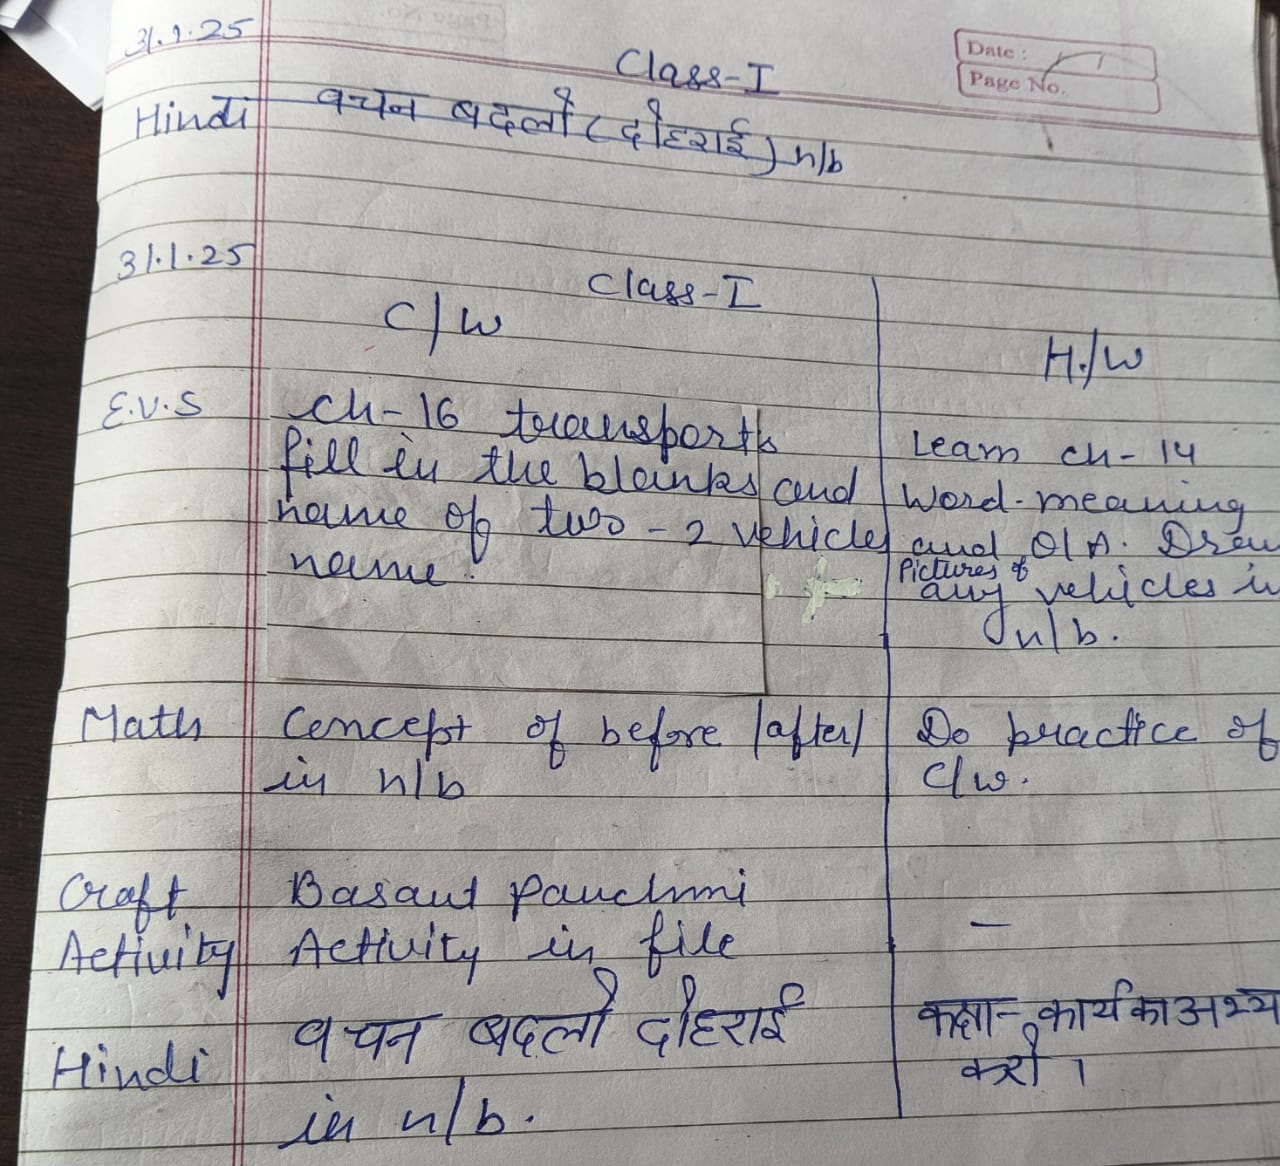 31.1.25
Class-I
Date :
Page No.
Hindi वचन बदलो (दोहराई) n/b
31.1.25
Class-I
C/W
H./W
E.V.S
ch-16 transports
fill in the blanks and
name of two-2 vehicles
name.
Learn ch-14
Word-meaning
and Q/A. Draw
Pictures of
any vehicles in
n/b.
Math
Concept of before /after/
in n/b
Do practice of
C/w.
Craft
Activity
Basant Panchmi
Activity in file
—
Hindi
वचन बदलो दोहराई
in n/b.
कक्षा-कार्य का अभ्या
करो ।